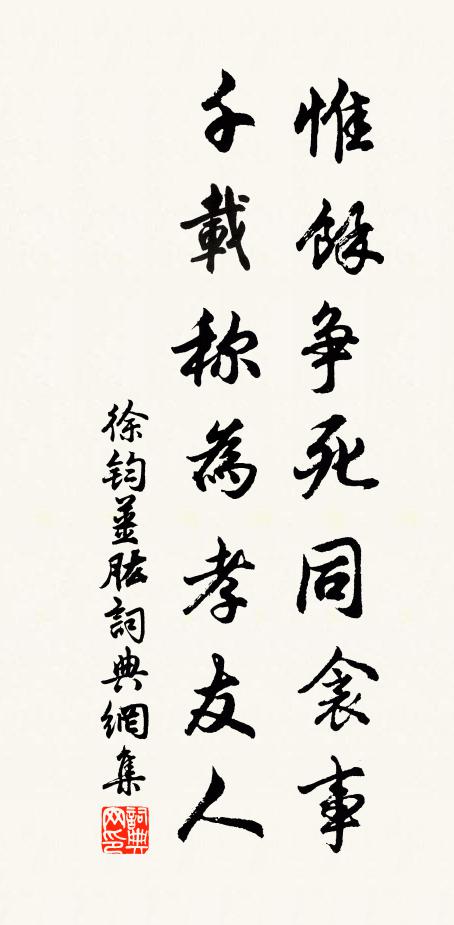 惟餘争死同衾事
千載称為孝友人
徐钧薑肱詞典網集
詞典網印